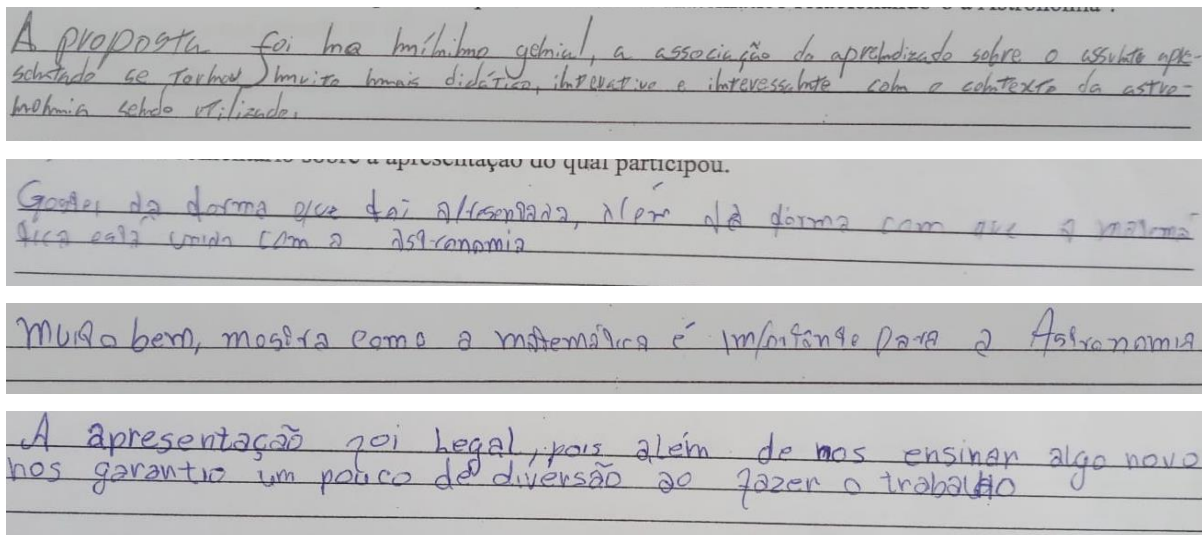 A proposta foi no mínimo genial, a associação do aprendizado sobre o assunto apre-
sentado se tornou muito mais didático, interativo e interessante com o contexto da astro-
nomia sendo utilizado.
sobre a apresentação do qual participou.
Gostei da forma que foi apresentada, alem da forma com que a matemá
tica está unida com a astronomia
muito bem, mostra como a matemática é importante para a Astronomia
A apresentação foi legal, pois além de nos ensinar algo novo
nos garantio um pouco de diversão ao fazer o trabalho